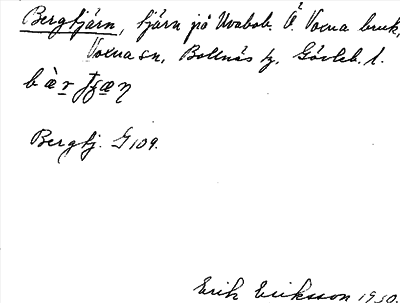 Bergtjärn, tjärn på Uvabob. Ö. Voxna bruk,
Voxna sn, Bollnäs tg, Gävleb. l.
Bergtj. G 109.
Erik Eriksson 1930.